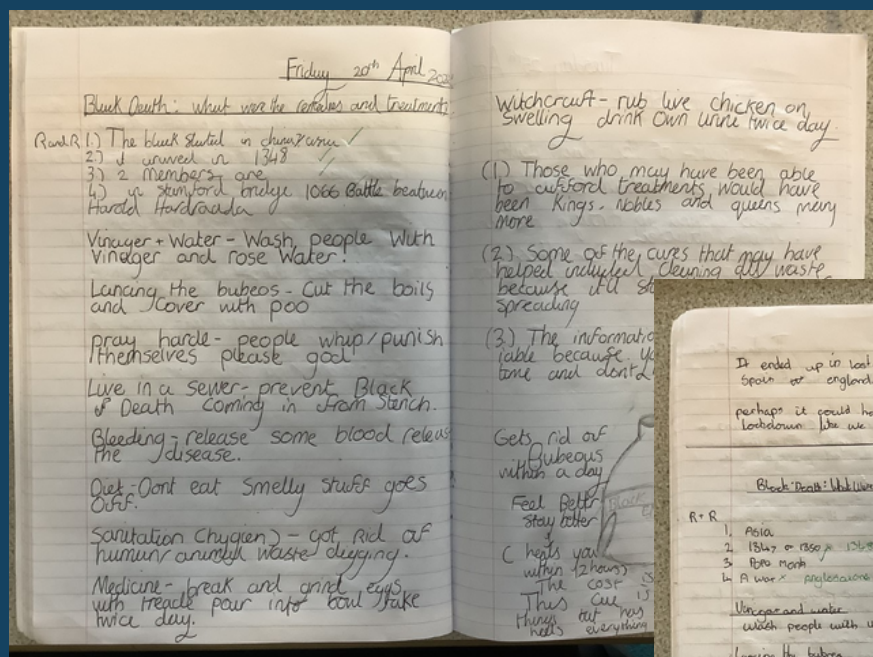 Friday 20th April
Black Death: what were the remedies and treatments
R and R 1.) The black started in china/asia ✓
2.) I arrived in 1348
3.) 2 members are
4.) in stamford bridge 1066 Battle beatween
Harold Hardraada
Vinager + Water - Wash people With
Vinager and rose Water!
Lancing the bubeos - Cut the boils
and cover with poo
pray harde - people whip/punish
themselves please god
Live in a Sewer - prevent Black
Death coming in from Stench.
Bleeding - release some blood releas
the disease.
Diet - Dont eat Smelly stuff goes
Off.
Sanitation (hygien) - got rid of
human/animal waste
Medicine - break and grind eggs
with treacle pour into bowl take
twice day.
Witchcraft - rub live chicken on
Swelling drink Own urine twice day.
(1.) Those who may have been able
to afford treatments would have
been Kings. nobles and queens many
more
(2.) Some of the cures that may have
helped included cleaning all waste
because it'll
spreading
(3.) The
because
time and dont
Gets rid of
Bubeous
within a day
Feel Better
Stay better
heals you
within 12 hours
The cost is
This cure is
things but has
heals everything
It ended up in
Spain or england
perhaps it could
Lockdown like we
Black Death:
R + R
1. Asia
2. 1347 or 1350 x 1348
3. Monk
4. A war x
Vinegar and water
Wash people with